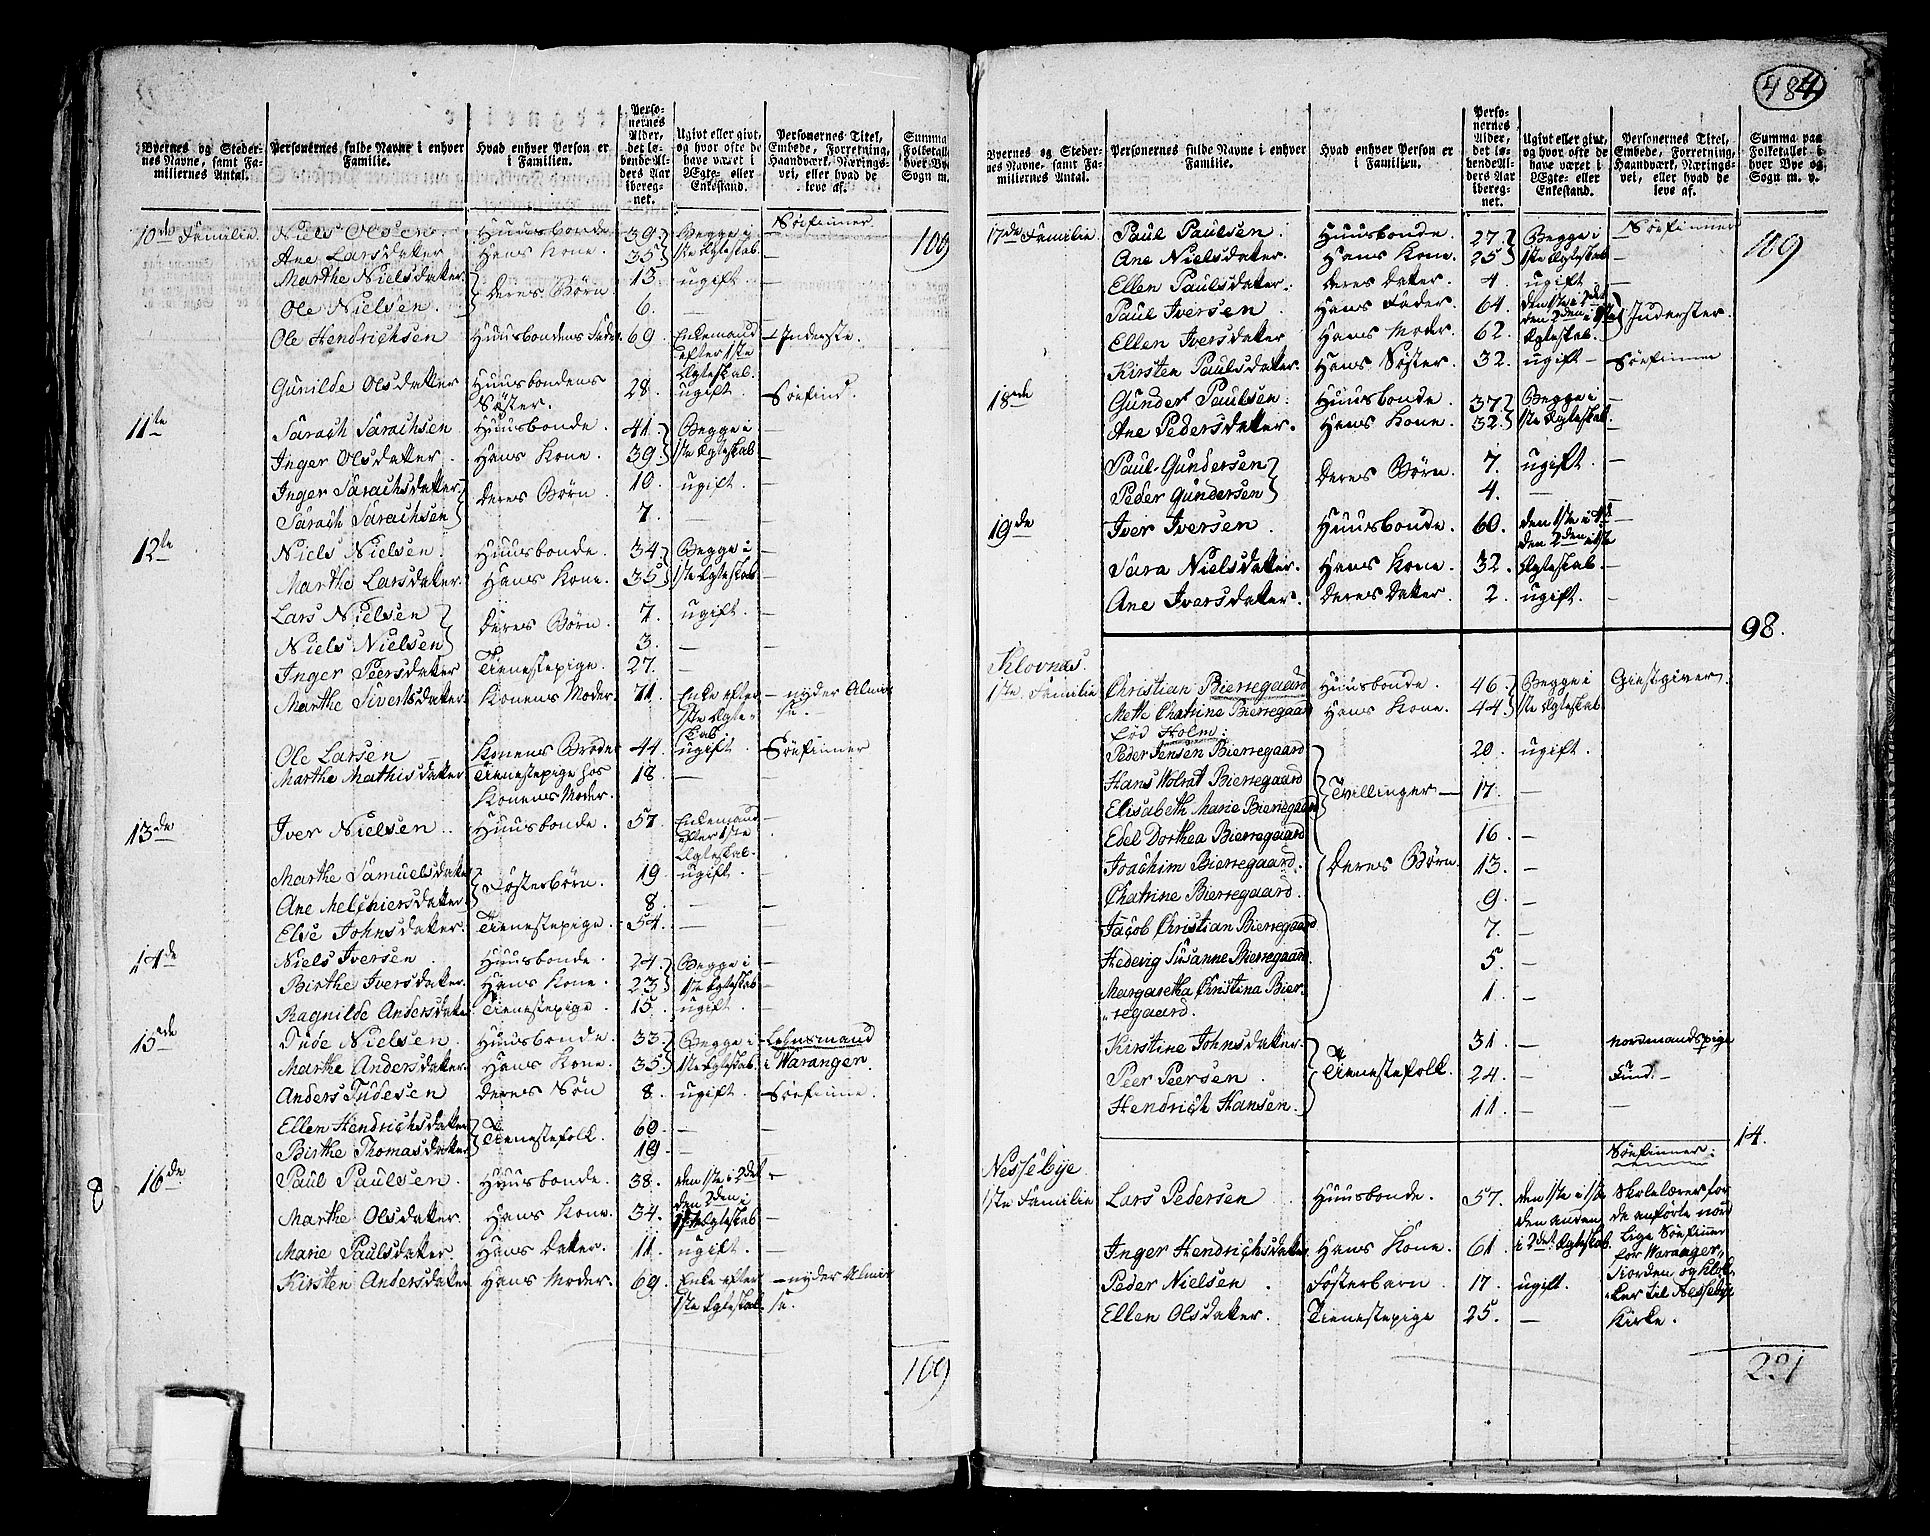 Byernes og Steder-
nes Navne, samt Fa-
miliernes Antal.
Personernes fulde Navne i enhver
Familie.
Hvad enhver Person er
i Familien.
Perso-
nernes
Alder,
det lø-
bende Al-
ders Aar
iberegn-
net.
Ugivt eller givt,
og hvor ofte de
have været i
Ægte- eller
Enkestand.
Personernes Titel,
Embede, Forretning,
Haandværk, Nærings-
vei, eller hvad de
leve af.
Summa
Folketal
hver By
Sogn m.
10de Familie. Niels Olsen. Huusbonde 39. Begge i Søefinner 109
Ane Larsdatter Hans Kone. 35. 1ste Ægteskab —
Marthe Nielsdatter Deres Børn 13. ugift. —
Ole Nielsen. 6. —
Ole Hendrichsen Huusbondens Fader. 69. Enkemand — Inderste.
efter 1ste
Ægteskab.
Gunilde Olsdatter Huusbondens 28. ugift. Søefind.
Søster.
11te Sarach Sarachsen Huusbonde. 41. Begge i —
Inger Olsdatter. Hans Kone. 39. 1ste Ægteskab —
Inger Sarachsdatter Deres Børn. 10. ugift. —
Sarach Sarachsen 7. — —
12te Niels Nielsen. Huusbonde. 34. Begge i —
Marthe Larsdatter. Hans Kone. 35. 1ste Ægteskab —
Lars Nielsen Deres Børn. 7. ugift. —
Niels Nielsen 3. — —
Inger Peersdatter Tienestepige. 27. — —
Marthe Sivertsdatter Konens Moder. 71. Enke efter — nyder Almis
1ste Ægte- se.
skab
Ole Larsen Konens Broder 44. ugift. Søefinner
Marthe Mathisdatter Tienestepige hos 18. —
Konens Moder.
13de Iver Nielsen. Huusbonde. 57. Enkemand —
efter 1ste
Ægteskab.
Marthe Samuelsdatter Fosterbørn. 19. ugift. —
Ane Melchiersdatter 8. — —
Else Johnsdatter. Tienestepige. 54. — —
14de Niels Iversen. Huusbonde. 24. Begge i —
Birthe Iversdatter. Hans Kone. 23. 1ste Ægteskab —
Ragnilde Andersdatter Tienestepige. 15. ugift. —
15de Tude Nielsen. Huusbonde. 33. Begge i Lehnsmand
Marthe Andersdatter. Hans Kone. 35. 1ste Ægteskab. i Waranger.
Anders Tudesen Deres Søn 8. ugift. Søefinne.
Ellen Hendrichsdatter Tienestefolk. 60. — —
Birthe Thomasdatter 19. — —
16de Paul Paulsen. Huusbonde. 38. den 1ste i 2det —
Marthe Olsdatter. Hans Kone. 34. den 2den i —
1ste Ægteskab
Marie Paulsdatter. Hans Datter. 11. ugift. —
Kirsten Andersdatter Hans Moder. 69. Enke efter — nyder Almis
1ste Ægteskab. se.
109
484
Byernes og Steder-
nes Navne, samt Fa-
miliernes Antal.
Personernes fulde Navne i enhver
Familie.
Hvad enhver Person er
i Familien.
Perso-
nernes
Alder,
det lø-
bende Al-
ders Aar
iberegn-
net.
Ugivt eller givt,
og hvor ofte de
have været i
Ægte- eller
Enkestand.
Personernes Titel,
Embede, Forretning,
Haandværk, Nærings-
vei, eller hvad de
leve af.
Summa paa
Folketallet i
hver Bye og
Sogn m. v.
17de Familie Paul Paulsen. Huusbonde. 27. Begge i Søefinner 109
Ane Nielsdatter. Hans Kone. 25. 1ste Ægteskab —
Ellen Paulsdatter. Deres Datter. 4. ugift —
Paul Iversen Hans Fader. 64. den 1ste i 2det Inderster.
Ellen Iversdatter Hans Moder. 62. den 2den i 1ste
Ægteskab.
Kirsten Paulsdatter. Hans Søster 32. ugift — Søefinne
18de Gunder Paulsen. Huusbonde. 37. Begge i —
Ane Pedersdatter. Hans Kone. 32. 1ste Ægteskab. —
Paul Gundersen Deres Børn. 7. ugift. —
Peder Gundersen 4. —
19de Iver Iversen. Huusbonde. 60. den 1ste i —
den 2den i 1ste
Sara Nielsdatter. Hans Kone. 32. Ægteskab. —
Ane Iversdatter. Deres Datter. 2. ugift. —
98.
Klovnæs.
1ste Familie Christian Bierregaard Huusbonde. 46. Begge i Giestgiver.
Mette Chatrine Bierregaard Hans Kone. 44. 1ste Ægteskab
fød Holm:
Peder Jensen Bierregaard 20. ugift.
Hans Holst Bierregaard Tvillinger — 17. —
Elisabeth Marie Bierregaard
Edel Dorthea Bierregaard 16. —
Joachim Bierregaard. Deres Børn. 13. —
Chatrine Bierregaard. 9. —
Jacob Christian Bierregaard 7. —
Hedevig Susanne Bierregaard. 5. —
Margaretha Christina Bier- 1. —
regaard.
Kirstine Johnsdatter. 31. — Normandspige
Peer Peersen. Tienestefolk. 24. — Find. —
Hendrich Hansen. 11. — —
14.
Søefinner:
Nessebye
1ste Familie Lars Pedersen Huusbonde. 57. den 1ste i 1ste Skolelærer for
den anden de anførte nord
Inger Hendrichsdatter Hans Kone. 61. i 2det Ægteskab. lige Søefinner
for Waranger-
Peder Nielsen. Fosterbarn. 17. ugift. fiorden og Klok-
ker til Nessebye
Ellen Olsdatter. Tienestepige 25. — Kirke.
221